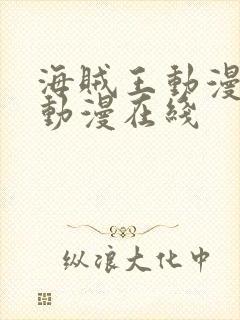 海賊王動漫
動漫在綫
纵浪大化中